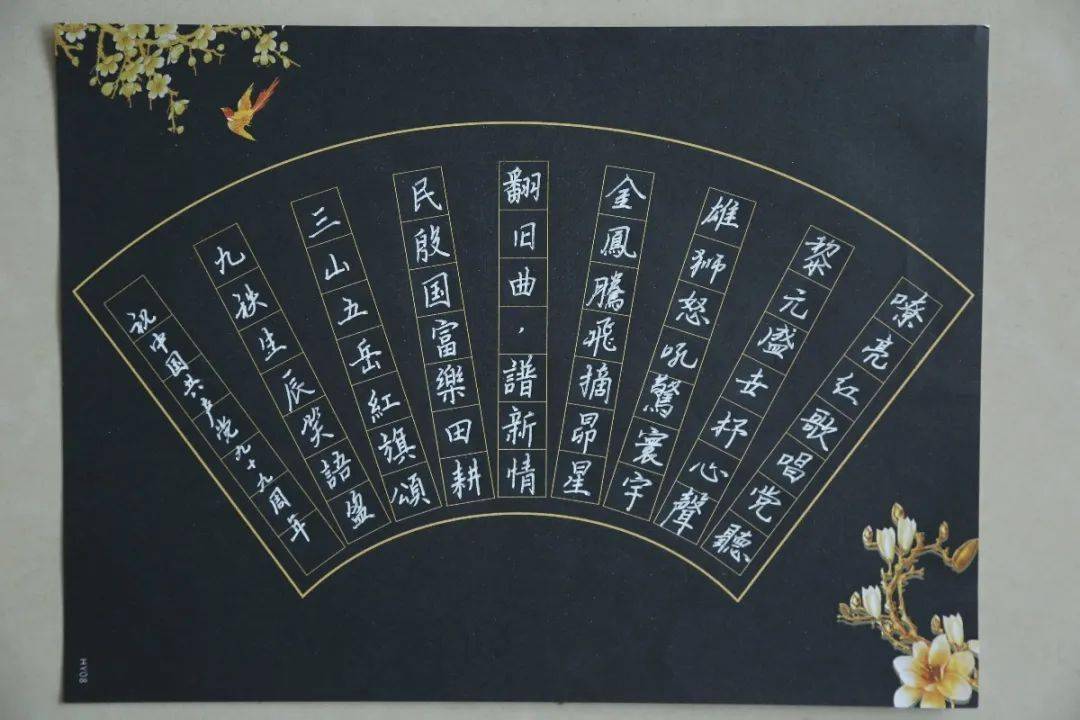 嘹亮红歌唱党聽
黎元盛世杯心聲
雄狮怒吼驚寰宇
金鳳騰飛摘昴星
翻旧曲，譜新情
民殷国富樂田耕
三山五岳紅旗頌
九秩生辰笑語盈
祝中国共产党九十九周年
HY08